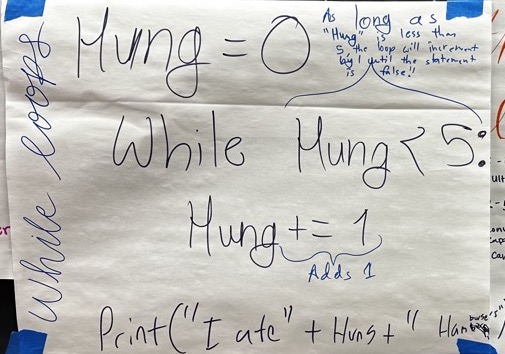 Hung = 0
As long as
"Hung" is less than
5, the loop will increment
by 1 until the statement
is false!!
While loops
While Hung < 5:
Hung += 1
Adds 1
Print("I ate" + Hung + " Ham